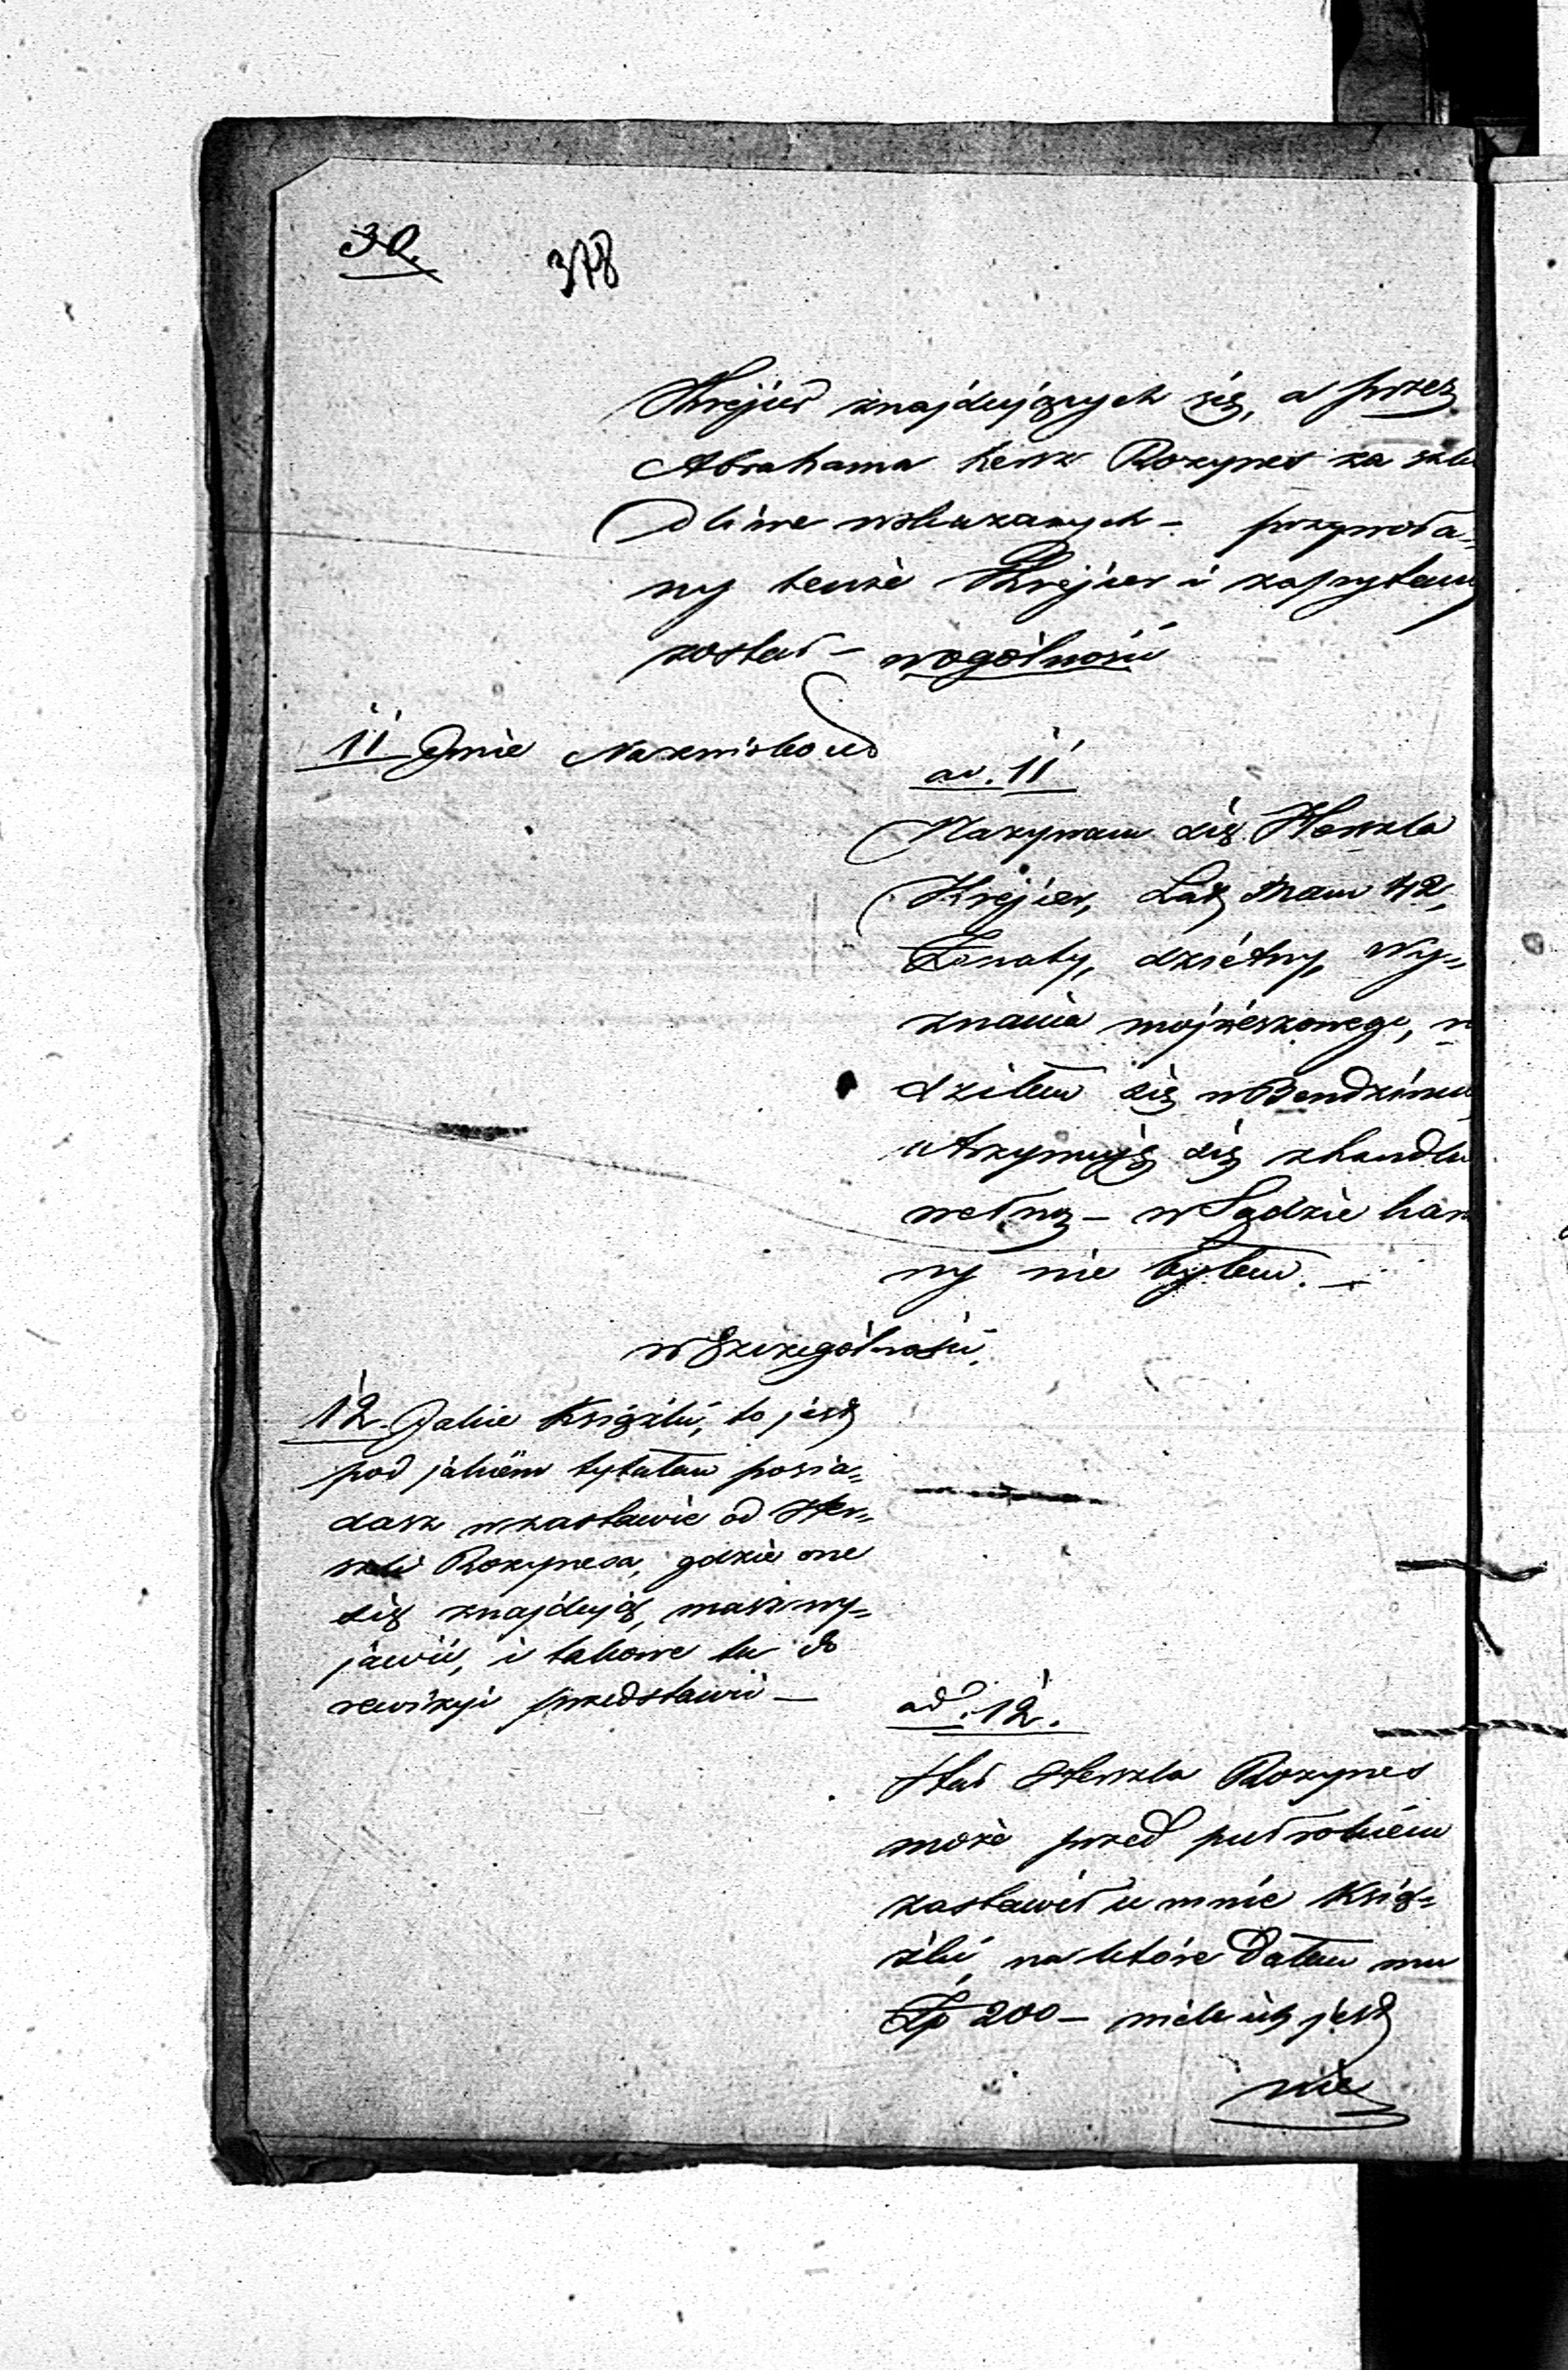 30.
378
Krejcer znajdujących się, a przez
Abrahama Herszk Rozynes za szko
dliwe wskazanych – przywoła-
ny tenże Krejcer i zapytany
został – wogólności
11 Jmie Nazwisko etc
ad. 11
Nazywam się Herszla
Krejcer, Lat mam 42,
Żonaty, dzietny, wy-
znania mojżeszowego, ro
dziłem się w Bendzinie
utrzymuję się z handlu
wełną – w Sądzie kara
ny nie byłem. –
w Szczególności,
12. Jakie Książki, to jest
pod jakiem tytułem posia-
dasz w zastawie od Her-
szli Rozynesa, gdzie one
się znajdują, masz wy-
jawić, i takowe tu do
rewizyi przedstawić –
ad. 12.
Herszla Rozynes
może przed pułrokiem
zastawił u mnie Książ-
żki, na które dałem mu
Złp 200 – wiele ich jest
nie